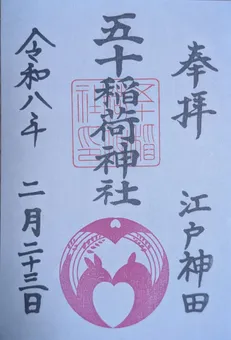 奉拝
江戸神田
五十稲荷神社
令和八年
二月二十三日